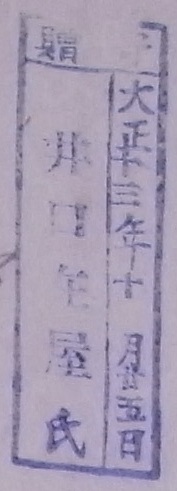 贈
大正十三年十 月廿五日
井口在屋氏